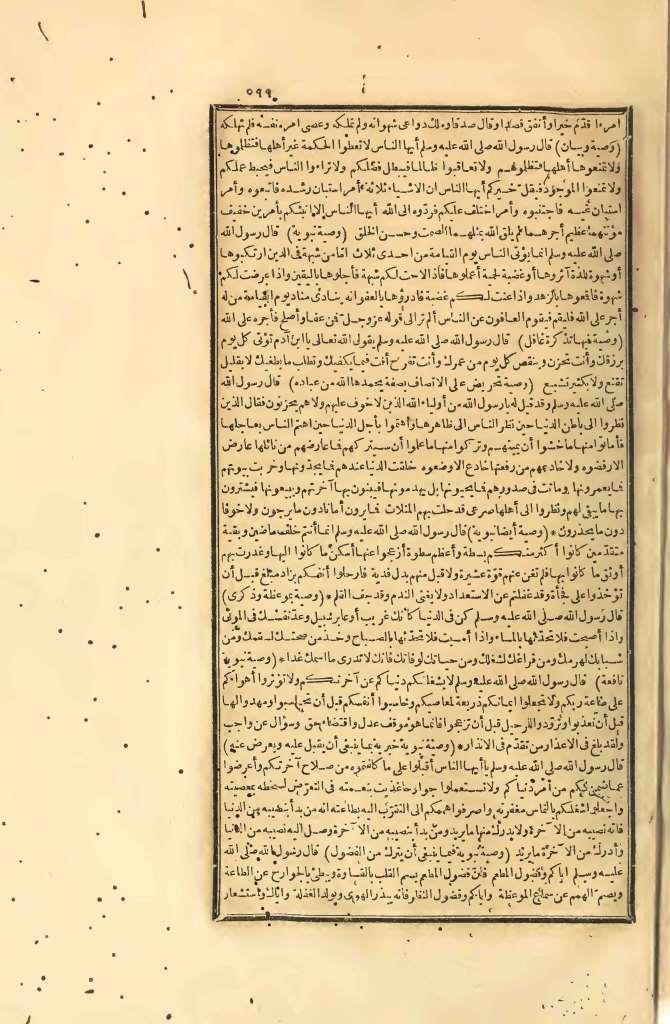 ٥٩٩
امرءا قدّم خيرا وأنفق قصدا وقال صدقا وملك دواعي شهوته ولم تملكه وعصى امره نفسه فلم تهلكه
(وصية وبيان) قال رسول الله صلى الله عليه وسلم أيها الناس لا تعطوا الحكمة غير أهلها فتظلموها
ولا تمنعوها أهلها فتظلموهم ولا تعاقبوا ظالما فيبطل فضلكم ولا تراءوا الناس فيحبط عملكم
ولا تمنعوا الموجود فيقل خيركم أيها الناس ان الاشياء ثلاثة أمر استبان رشده فاتبعوه وأمر
استبان غيه فاجتنبوه وأمر اختلف عليكم فردّوه الى الله أيها الناس ألا أنبئكم بأمرين خفيف
مؤنتهما عظيم أجرهما لم يلق الله بمثلهما الصمت وحسن الخلق (وصية نبوية) قال رسول الله
صلى الله عليه وسلم انما يؤتى الناس يوم القيامة من احدى ثلاث اما من شبهة في الدين ارتكبوها
أو شهوة للذة آثروها أو غضبة لحمية أعملوها فاذا لاحت لكم شبهة فاجلوها باليقين واذا عرضت لكم
شهوة فاقمعوها بالزهد واذا عنت لكم غضبة فادرؤها بالعفو انه ينادى مناد يوم القيامة من له
أجر على الله فليقم فيقوم العافون عن الناس ألم تر الى قوله عز وجل فمن عفا وأصلح فأجره على الله
(وصية فيها تذكرة غافل) قال رسول الله صلى الله عليه وسلم يقول الله تعالى يا ابن آدم تؤتى كل يوم
برزقك وأنت تحزن وينقص كل يوم من عمرك وأنت تفرح أنت فيما يكفيك وتطلب ما يطغيك لا بقليل
تقنع ولا بكثير تشبع (وصية تحريض على الاتصاف بصفة يحمدها الله من عباده) قال رسول الله
صلى الله عليه وسلم وقد قيل له يا رسول الله من أولياء الله الذين لا خوف عليهم ولا هم يحزنون فقال الذين
نظروا الى باطن الدنيا حين نظر الناس الى ظاهرها واهتموا بآجل الدنيا حين اهتم الناس بعاجلها
فأماتوا منها ما خشوا أن يميتهم وتركوا منها ما علموا أن سيتركهم فما عارضهم من نائلها عارض
الا رفضوه ولا خادعهم من رفعتها خادع الا وضعوه خلقت الدنيا عندهم فما يجدّدونها وخربت بيوتهم
فما يعمرونها وماتت في صدورهم فما يحيونها بل يهدمونها فيبنون بها آخرتهم ويبيعونها فيشترون
بها ما يبقى لهم ونظروا الى أهلها صرعى قد حلت بهم المثلات فما يرون أمانا دون ما يرجون ولا خوفا
دون ما يحذرون * (وصية أيضا نبوية) قال رسول الله صلى الله عليه وسلم انما أنتم خلف ماضين وبقية
متقدّمين كانوا أكثر منكم بسطة وأعظم سطوة أزعجوا عنها أسكن ما كانوا اليها وغدرت بهم
أوثق ما كانوا بها فلم تغن عنهم قوّة عشيرة ولا قبل منهم بدل فدية فارحلوا أنفسكم بزاد مبلغ قبل أن
تؤخذوا على فجأة وقد غفلتم عن الاستعداد ولا يغنى الندم وقد جف القلم * (وصية بموعظة وذكرى)
قال رسول الله صلى الله عليه وسلم كن في الدنيا كأنك غريب أو عابر سبيل وعدّ نفسك في الموتى
واذا أصبحت فلا تحدّثها بالمساء واذا أمسيت فلا تحدّثها بالصباح وخذ من صحتك لسقمك ومن
شبابك لهرمك ومن فراغك لشغلك ومن حياتك لوفاتك فانك لا تدرى ما اسمك غدا * (وصية نبوية
نافعة) قال رسول الله صلى الله عليه وسلم لا يشغلنكم دنياكم عن آخرتكم ولا تؤثروا أهواءكم
على طاعة ربكم ولا تجعلوا ايمانكم ذريعة لمعاصيكم وحاسبوا أنفسكم قبل أن تحاسبوا ومهدوا لها
قبل أن تعذبوا وتزوّدوا للرحيل قبل أن تزعجوا فانما هو موقف عدل واقتضاء حق وسؤال عن واجب
ولقد بلغ في الاعذار من تقدّم في الانذار * (وصية نبوية خبرية بما ينبغي أن يقبل عليه ويعرض عنه)
قال رسول الله صلى الله عليه وسلم يا أيها الناس أقبلوا على ما كلفتموه من صلاح آخرتكم وأعرضوا
عما ضمن لكم من أمر دنياكم ولا تستعملوا جوارحا غذيت بنعمته في التعرّض لسخطه بمعصيته
واجعلوا شغلكم بالتماس مغفرته واصرفوا هممكم الى التقرّب اليه بطاعته انه من بدأ بنصيبه من الدنيا
فاته نصيبه من الآخرة ولا يدرك منها ما يريد ومن بدأ بنصيبه من الآخرة وصل اليه نصيبه من الدنيا
وأدرك من الآخرة ما يريد (وصية نبوية فيما ينبغي أن يترك من الفضول) قال رسول الله صلى الله
عليه وسلم اياكم وفضول المطعم فان فضول المطعم يسم القلب بالقساوة ويبطئ بالجوارح عن الطاعة
ويصم الهمم عن سماع الموعظة واياكم وفضول النظر فانه يبذر الهوى ويولد الغفلة واياكم واستشعار